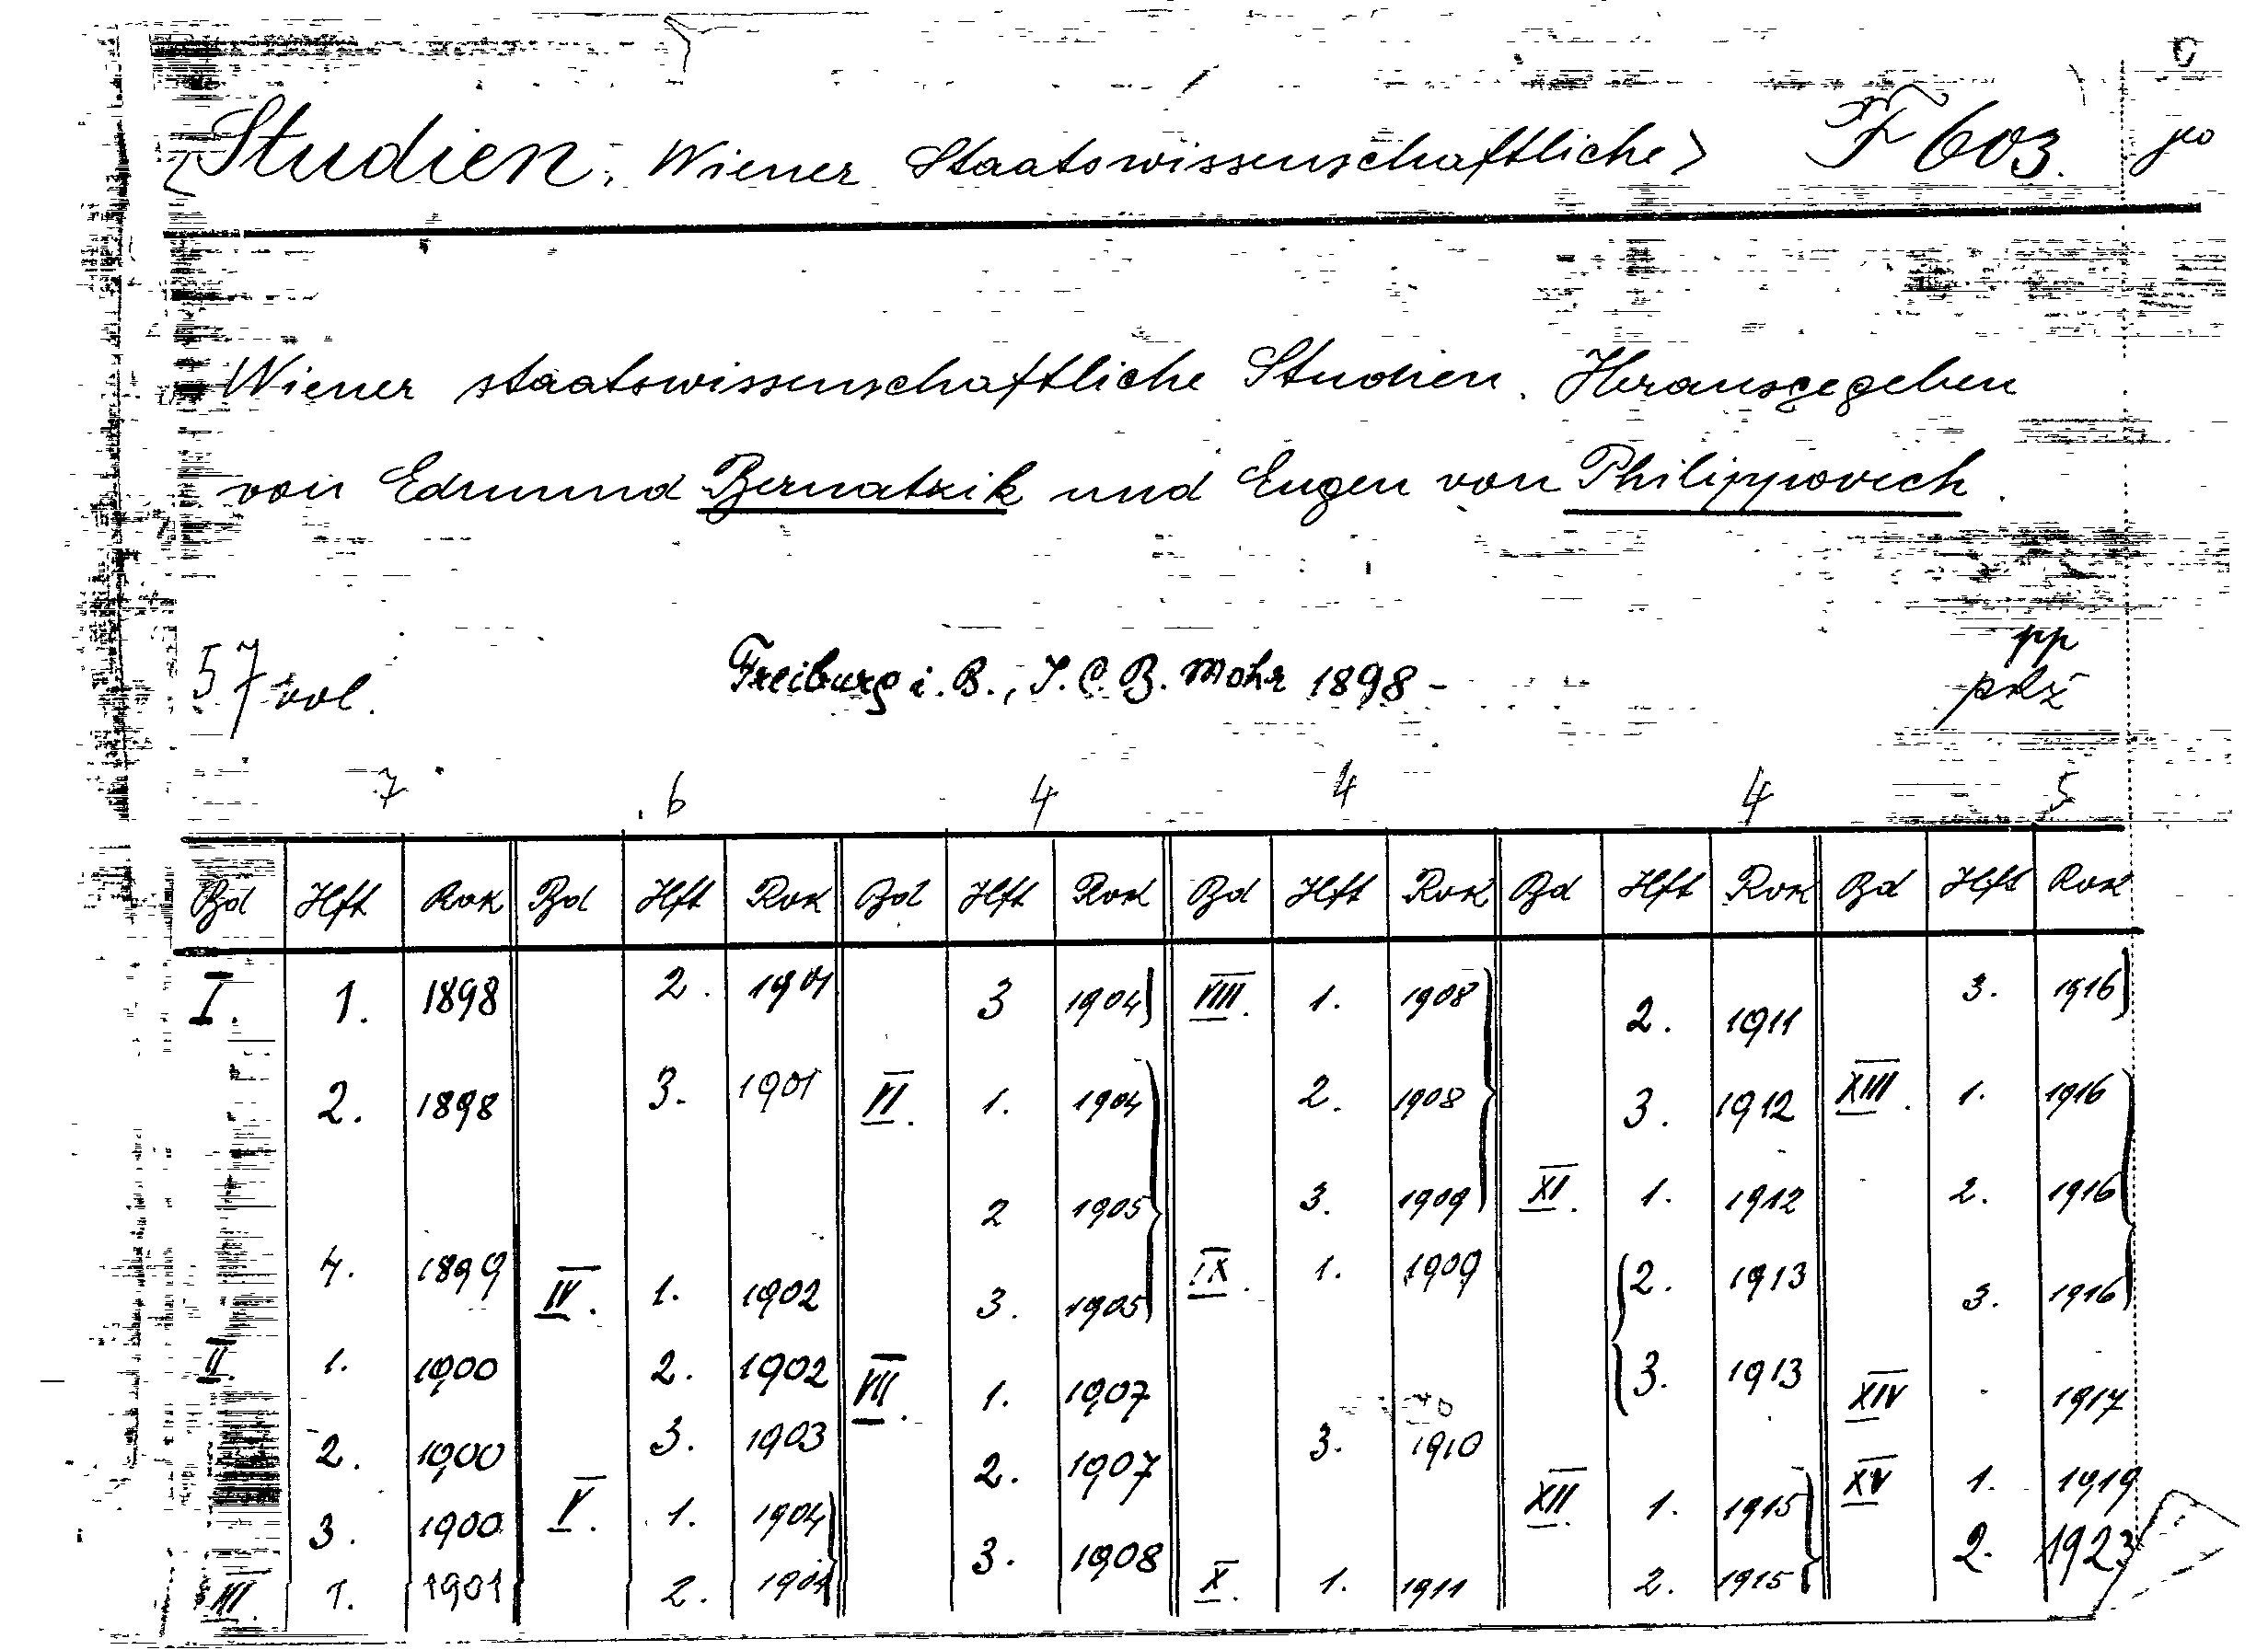 <Studien, Wiener Staatswissenschaftliche> F 603.
Wiener staatswissenschaftliche Studien. Herausgegeben
von Edmund Bernatzik und Eugen von Philippovich.
pp
57 vol. Freiburg i. B., J. C. B. Mohr 1898 -
7 6 4 4 4 5
Bd Hft Rok Bd Hft Rok Bd Hft Rok Bd Hft Rok Bd Hft Rok Bd Hft Rok
I. 1. 1898 2. 1901 3 1904 VIII. 1. 1908 2. 1911 3. 1916
2. 1898 3. 1901 VI. 1. 1904 2. 1908 3. 1912 XIII. 1. 1916
2 1905 3. 1909 XI. 1. 1912 2. 1916
4. 1899 IV. 1. 1902 3. 1905 IX. 1. 1909 2. 1913 3. 1916
II. 1. 1900 2. 1902 VII. 1. 1907 3. 1913 XIV 1917
2. 1900 3. 1903 2. 1907 3. 1910 XV 1. 1919
3. 1900 V. 1. 1904 3. 1908 XII. 1. 1915 2. 1923
III. 1. 1901 2. 1904 X. 1. 1911 2. 1915